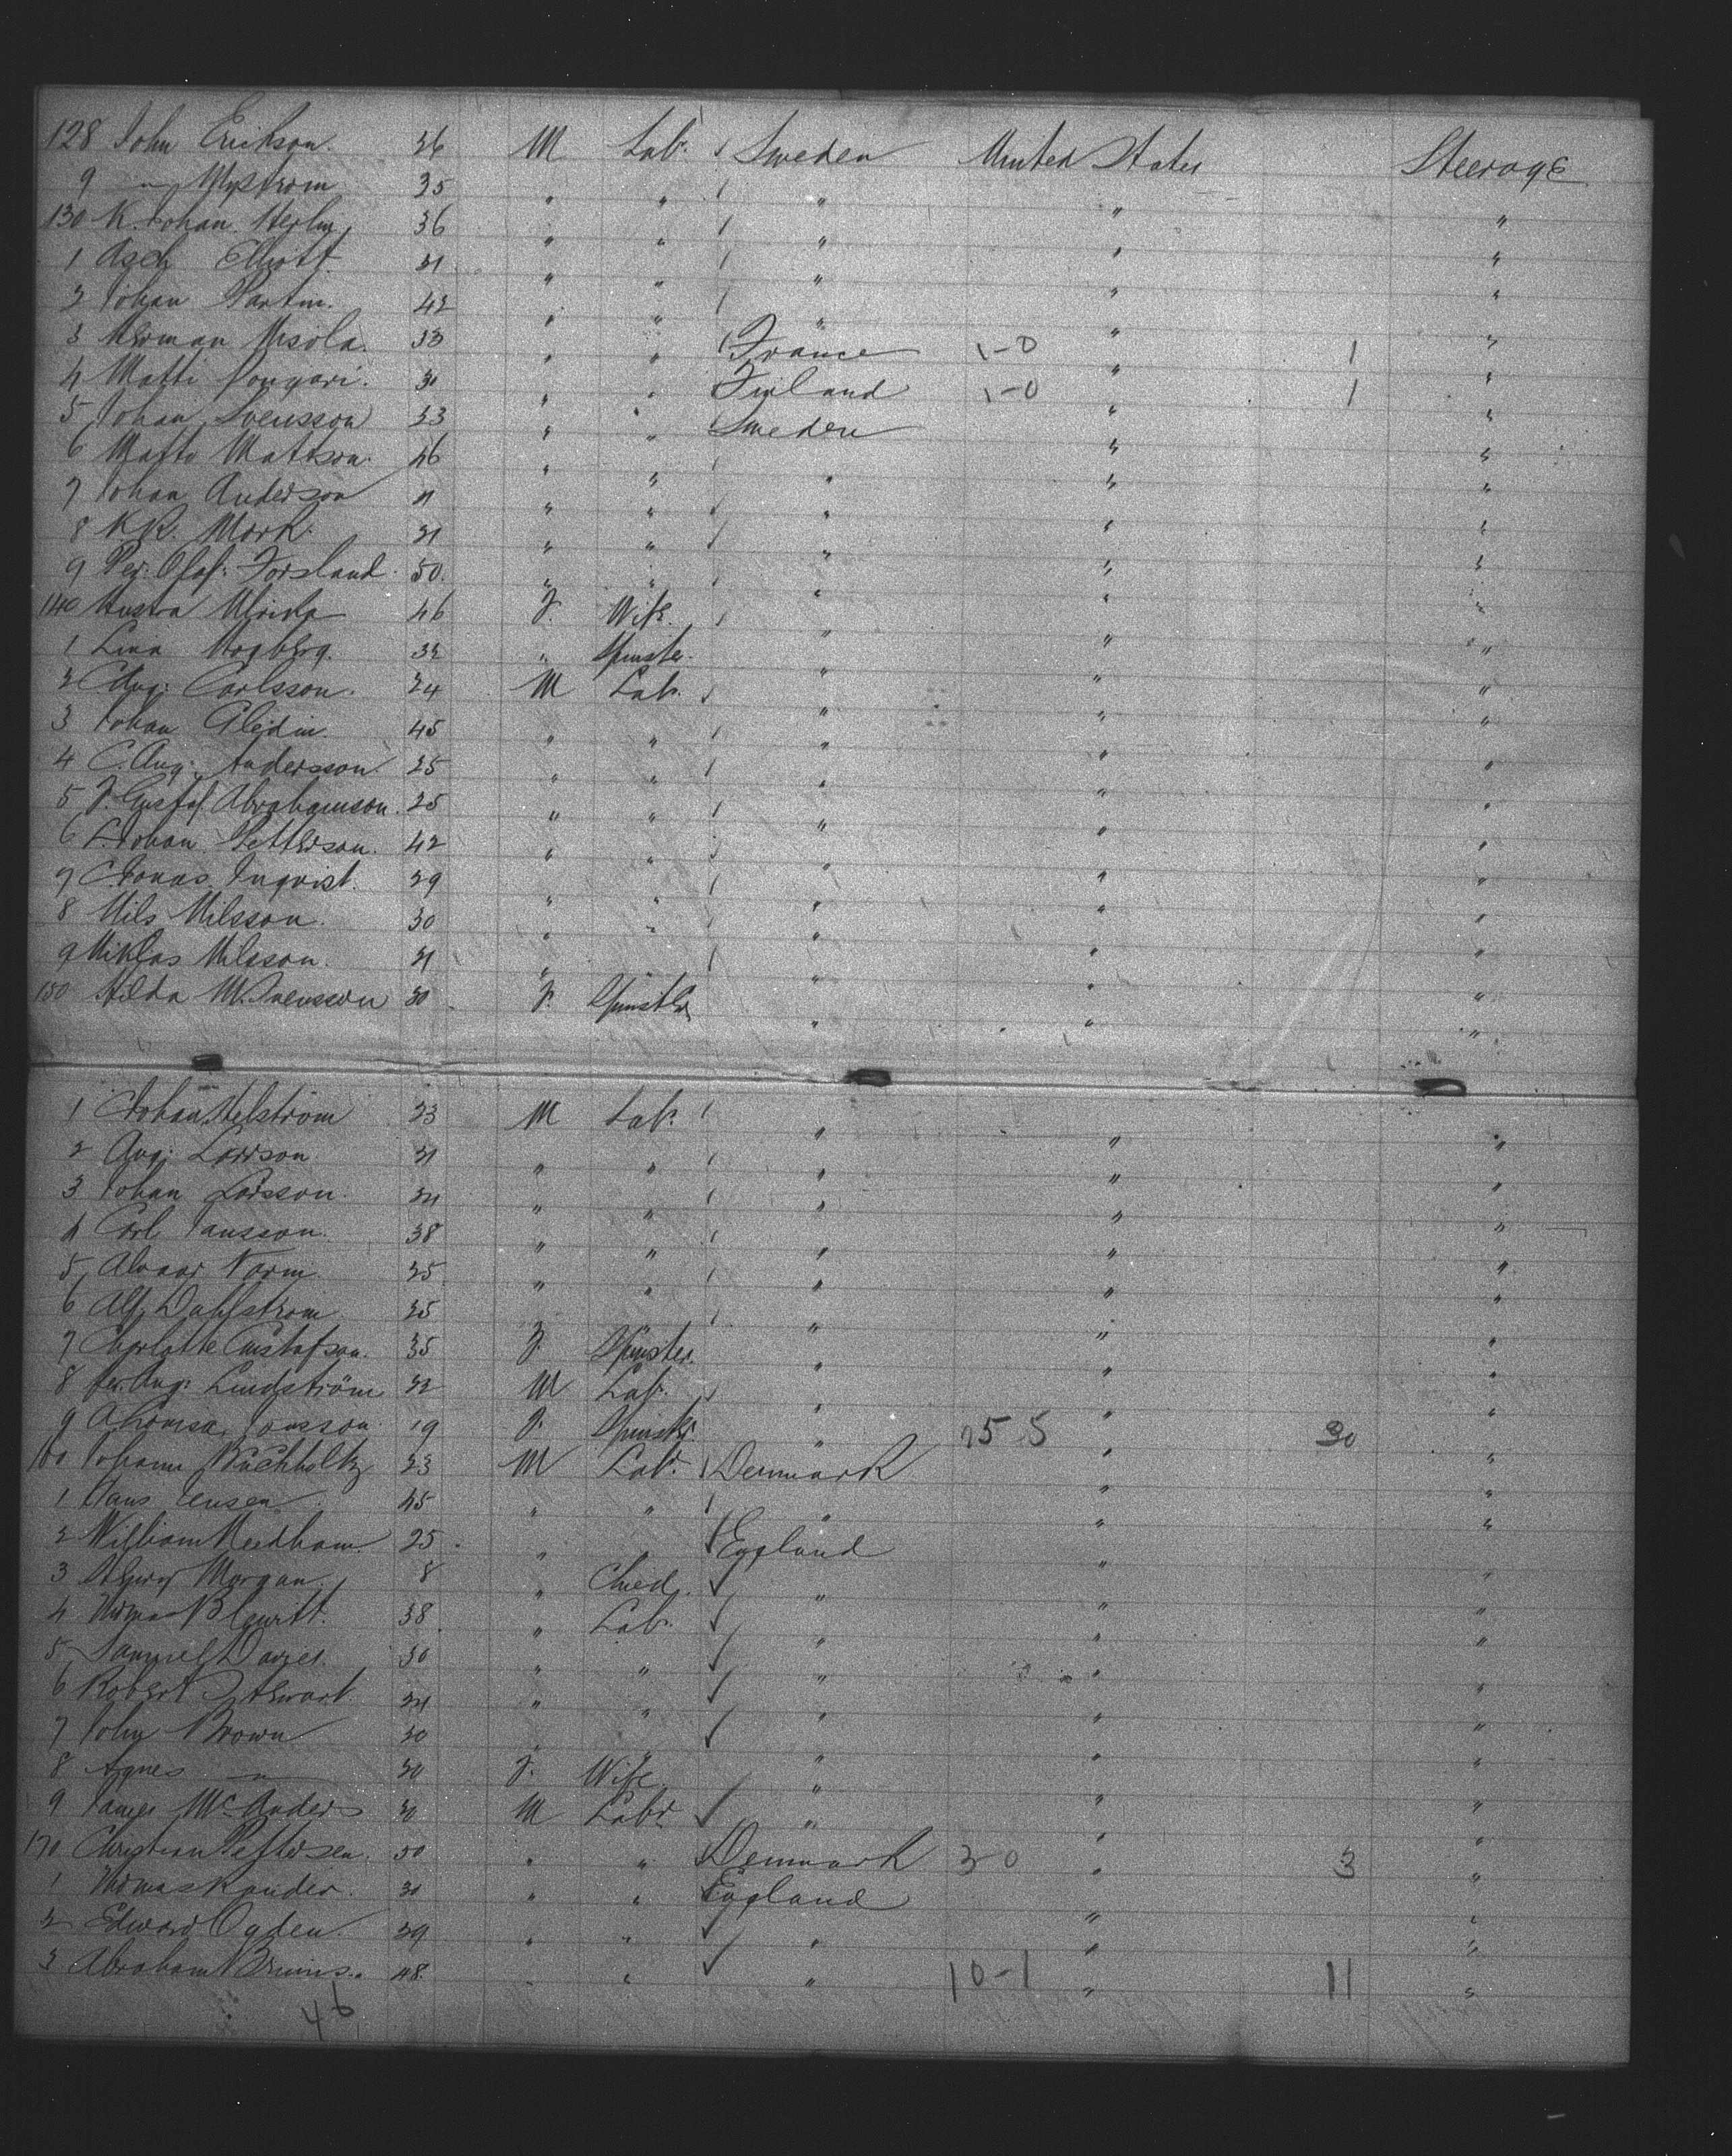 128 John Erikson. 36 M Lab. Sweden United States Steerage
9 " Nystrom 35 " " " " "
130 K. Johan 36 " " " " "
1 Elliott. 31 " " " " "
2 Johan Martin. 42 " " " " "
3 Herman 33 " " France 1-0 " 1 "
4 Matti 30 " " Finland 1-0 " 1 "
5 Johan Svensson 33 " " Sweden " "
6 Matts Mattson. 46 " " " " "
7 Johan Anderson " " " " "
8 K.K. Mark. 31 " " " " "
9 Per. Olof. Forsland. 50. " " " " "
140 Ulrika 46 F. Wife. " " "
1 Lina Hogberg. 32 " Spinster. " " "
2 C. Aug: Carlsson. 24 M Lab. " " "
3 Johan 45 " " " " "
4 C. Aug: Andersson. 25 " " " " "
5 J. Gustaf Abrahamson. 25 " " " " "
6 L. Johan Petterson. 42 " " " " "
7 C. Jonas Inqvist. 29 " " " " "
8 Nils Nilsson. 30 " " " " "
9 Niklas Nilsson. 31 " " " " "
150 Hilda M. Svensson 30 F. Spinster " " "
1 C. Johan Helström 23 M Lab. " " "
2 Aug: Larsson 31 " " " " "
3 Johan Larsson. " " " " "
4 Carl Jansson. 38 " " " " "
5 Norm 35 " " " " "
6 Alf. Dahlstrom 35 " " "
7 Charlotte Gustafson. 35 F. Spinster. " " "
8 Per. Aug: Lindström 32 M Lab. " " "
9 A. Lovisa Jonsson 19 F. Spinster. " 25 5 " 30 "
160 Johann Buchholtz 23 M Lab. Denmark " "
1 Hans Jensen 45 " " " " "
2 William Needham. 25. " England " "
3 Henry Morgan 8 " Child. " " "
4 Thomas Blewitt. 38 " Lab. " " "
5 Samuel Davies. 30 " " " " "
6 Robert Stewart. " " " " "
7 John Brown 30 " " " " "
8 Agnes " 30 F. Wife " " "
9 James McAnders 30 M Labr. " " "
170 Christian Pettersen. 50 " " Denmark 3 0 " 3 "
1 Thomas 30 " " England " "
2 Edward Ogden. 39 " " " " "
3 Abraham 48. " " " 10-1 " 11 "
46